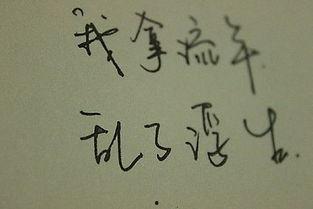 "我拿流年
乱了浮生.